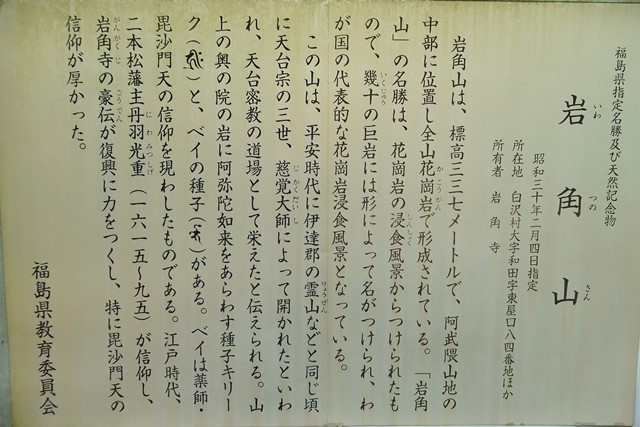 福島県指定名勝及び天然記念物
岩角山
いわつのさん
昭和三十年二月四日指定
所在地 白沢村大字和田字東屋口八四番地ほか
所有者 岩角寺
岩角山は、標高三三七メートルで、阿武隈山地の
中部に位置し全山花崗岩で形成されている。「岩角
山」の名勝は、花崗岩の浸食風景からつけられたも
ので、幾十の巨岩には形によって名がつけられ、わ
が国の代表的な花崗岩浸食風景となっている。
この山は、平安時代に伊達郡の霊山などと同じ頃
に天台宗の三世、慈覚大師によって開かれたといわ
れ、天台密教の道場として栄えたと伝えられる。山
上の奥の院の岩に阿弥陀如来をあらわす種子キリー
ク()と、ベイの種子()がある。ベイは薬師・
毘沙門天の信仰を現わしたものである。江戸時代、
二本松藩主丹羽光重(一六一五〜九五)が信仰し、
岩角寺の豪伝が復興に力をつくし、特に毘沙門天の
信仰が厚かった。
福島県教育委員会